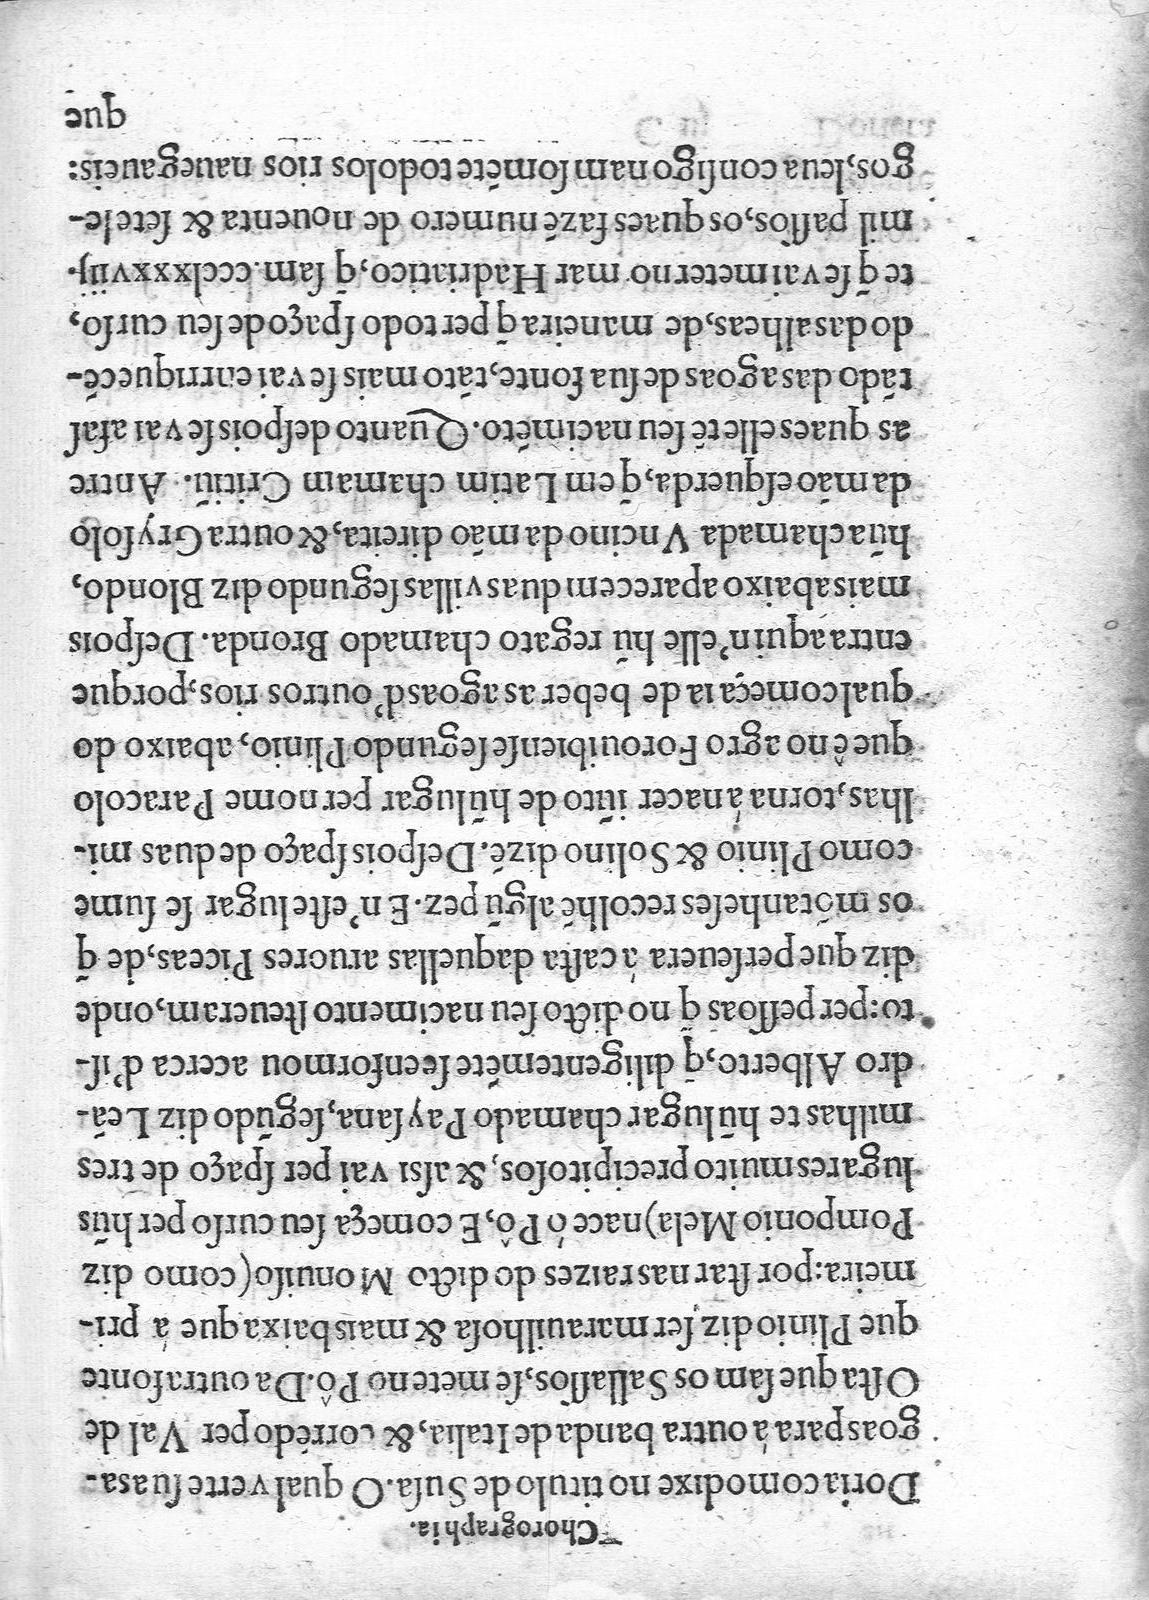 Chorographia.
Doria como dixe no titulo de Susa. O qual verte suas a-
goas pera á outra banda de Italia, & corrẽdo per Val de
Osta que sam os Sallassos, se mete no Pô. Da outra fonte
que Plinio diz ser marauilhosa & mais baixa que á pri-
meira: por star nas raizes do dicto Monuiso (como diz
Pomponio Mela) nace ó Pô, E começa seu curso per hũs
lugares muito precipitosos, & assi vai per spaço de tres
milhas te hũ lugar chamado Paysana, segũdo diz Leã-
dro Alberto, q̃ diligentemẽte se enformou acerca d'is-
to: per pessoas q̃ no dicto seu nacimento steueram, onde
diz que perseuera á casta daquellas aruores Piceas, de, q̃
os mõtanheses recolhẽ algũ pez. E n'este lugar se sume
como Plinio & Solino dizẽ. Despois spaço de duas mi-
lhas, torna á nacer iũto de hũ lugar per nome Paracolo
que ê no agro Forouibiense segundo Plinio, abaixo do
qual começa ia de beber as agoas d'outros rios, porque
entra aqui n'elle hũ regato chamado Bronda. Despois
mais abaixo aparecem duas villas segundo diz Blondo,
hũa chamada Vncino da mão direita, & outra Gryfolo
da mão esquerda, q̃ em Latim chamam Critiũ. Antre
as quaes elle tẽ seu nacimẽto. Quanto despois se vai afas
tãdo das agoas de sua fonte, tãto mais se vai enrriquecẽ-
do das alheas, de maneira q̃ per todo spaço de seu curso,
te q̃ se vai meter no mar Hadriatico, q̃ sam. ccclxxxviij.
mil passos, os quaes fazẽ numero de nouenta & sete le-
gos, leua consigo nam somẽte todolos rios nauegaueis:
que